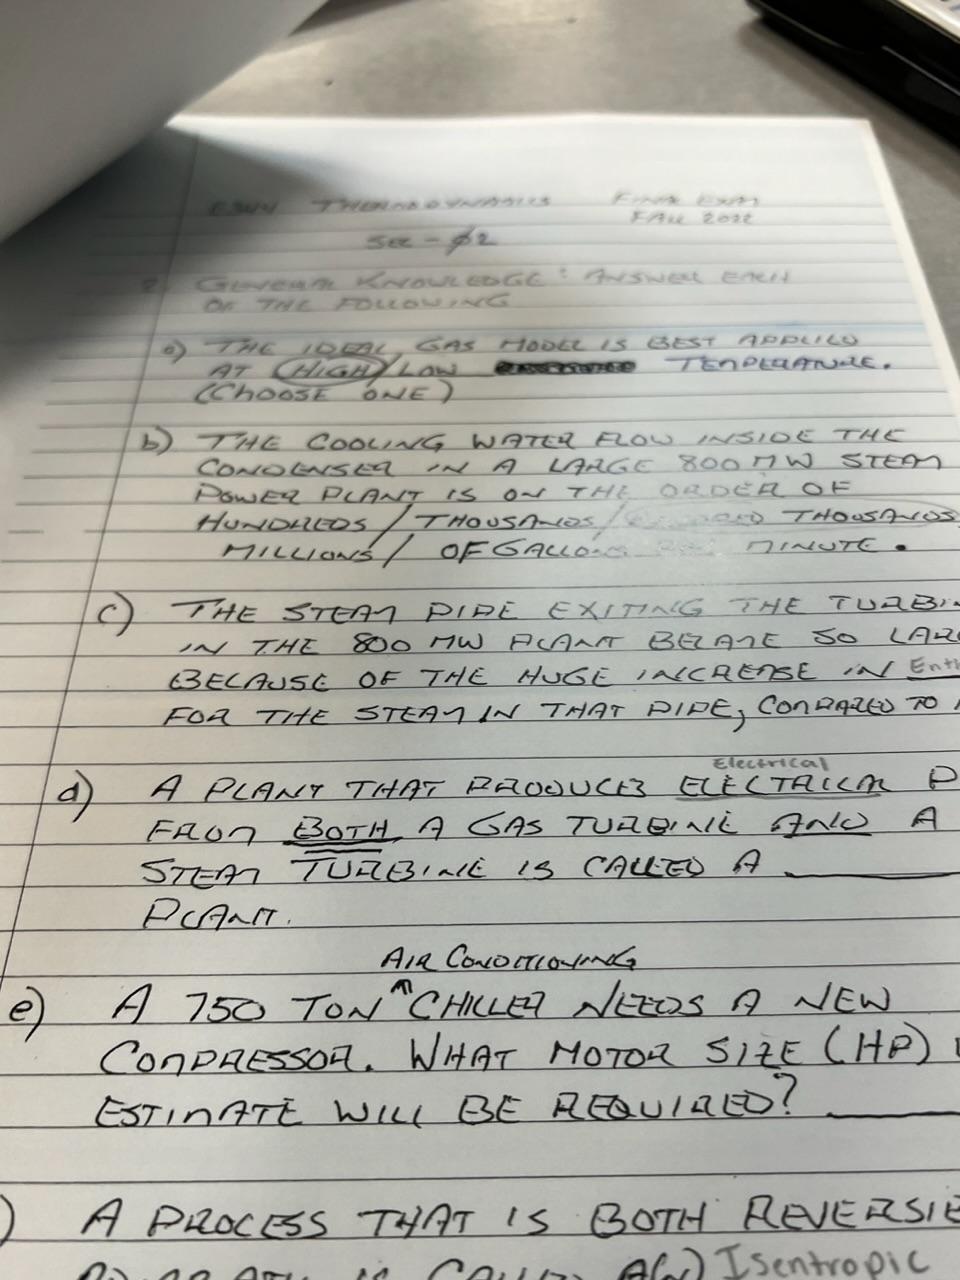 THERMODYNAMICS FINAL EXAM
FALL 2022
SEC - Ø2
2. GENERAL KNOWLEDGE: ANSWER EACH
OF THE FOLLOWING
a) THE IDEAL GAS MODEL IS BEST APPLIED
AT HIGH/LOW TEMPERATURE.
(CHOOSE ONE)
b) THE COOLING WATER FLOW INSIDE THE
CONDENSER IN A LARGE 800 MW STEAM
POWER PLANT IS ON THE ORDER OF
HUNDREDS / THOUSANDS / THOUSANDS
MILLIONS / OF GALLONS MINUTE.
c) THE STEAM PIPE EXITING THE
IN THE 800 MW PLANT SO
BECAUSE OF THE HUGE INCREASE IN
FOR THE STEAM IN THAT PIPE, COMPARED TO
Electrical
d) A PLANT THAT PRODUCES ELECTRICAL
FROM BOTH A GAS TURBINE AND A
STEAM TURBINE IS CALLED A
PLANT.
AIR CONDITIONING
e) A 750 TON ^ CHILLER NEEDS A NEW
COMPRESSOR. WHAT MOTOR SIZE (HP)
ESTIMATE WILL BE REQUIRED?
) A PROCESS THAT IS BOTH
IS A(N) Isentropic